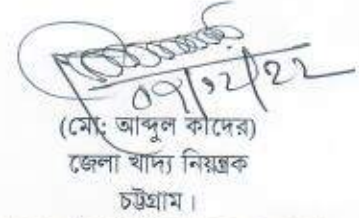 ০৭/১২/২২
(মো: আব্দুল কাদের)
জেলা খাদ্য নিয়ন্ত্রক
চট্টগ্রাম।